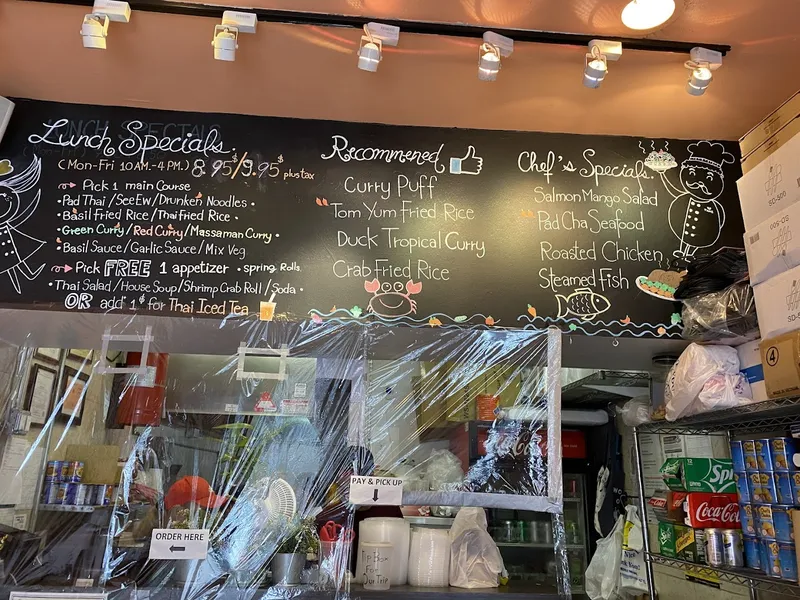 Lunch Specials.
(Mon-Fri 10 AM.-4 PM.) 8.95$/9.95$ plus tax
Pick 1 main Course
• Pad Thai / See Ew / Drunken Noodles •
• Basil Fried Rice / Thai Fried Rice •
• Green Curry / Red Curry / Massaman Curry •
• Basil Sauce / Garlic Sauce / Mix Veg
Pick FREE 1 appetizer • spring Rolls
• Thai Salad / House Soup / Shrimp Crab Roll / Soda •
OR add 1$ for Thai Iced Tea
Recommened
Curry Puff
Tom Yum Fried Rice
Duck Tropical Curry
Crab Fried Rice
Chef's Specials.
Salmon Mango Salad
Pad Cha Seafood
Roasted Chicken
Steamed Fish
PAY & PICK UP
ORDER HERE
Coca-Cola
Spr
Coca-Cola
4